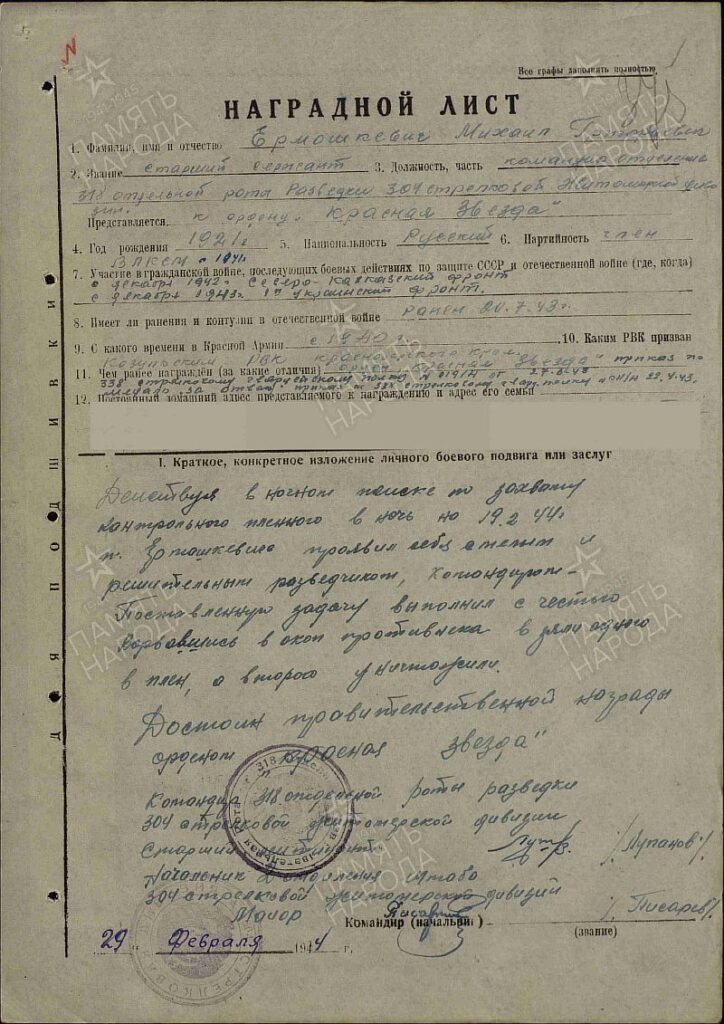 Все графы заполнять полностью
НАГРАДНОЙ ЛИСТ
1. Фамилия, имя и отчество Ермошкевич Михаил
2. Звание старший сержант 3. Должность, часть командир отделения
318 отдельной роты Разведки 304 стрелковой Житомирской диви
зии.
Представляется к ордену „Красная Звезда"
4. Год рождения 1921г. 5. Национальность Русский 6. Партийность член
ВЛКСМ с 1941г.
7. Участие в гражданской войне, последующих боевых действиях по защите СССР и отечественной войне (где, когда)
с декабря 1942г. Северо-Кавказский фронт
с декабря 1943г. 1й украинский фронт.
8. Имеет ли ранения и контузии в отечественной войне ранен 20.7.43г.
9. С какого времени в Красной Армии с 1940г. 10. Каким РВК призван
РВК красноярского края
11. Чем ранее награждён (за какие отличия) орден „Красная Звезда" приказ по
338 стрелковому гвардейскому полку № 019/Н от
медаль за отвагу приказ по стрелковому гвард. полку 22.4.43.
12. Постоянный домашний адрес представляемого к награждению и адрес его семьи
I. Краткое, конкретное изложение личного боевого подвига или заслуг
Действуя в ночном поиске по захвату
контрольного пленного в ночь на 19.2.44г.
т. Ермошкевич проявил себя смелым и
решительным разведчиком, командиром –
Поставленную задачу выполнил с честью
ворвавшись в окоп противника взяли одного
в плен, а второго уничтожили.
Достоин правительственной награды
орденом „красная звезда"
Командир 318 отдельной роты разведки
304 стрелковой житомирской дивизии
Старший лейтенант /Лупанов/
Начальник штаба
304 стрелковой житомирской дивизии
Майор /Писарев/
Командир (начальник)
(звание)
„29" Февраля 1944 г.
ДЛЯ ПОДШИВКИ
ПАМЯТЬ НАРОДА